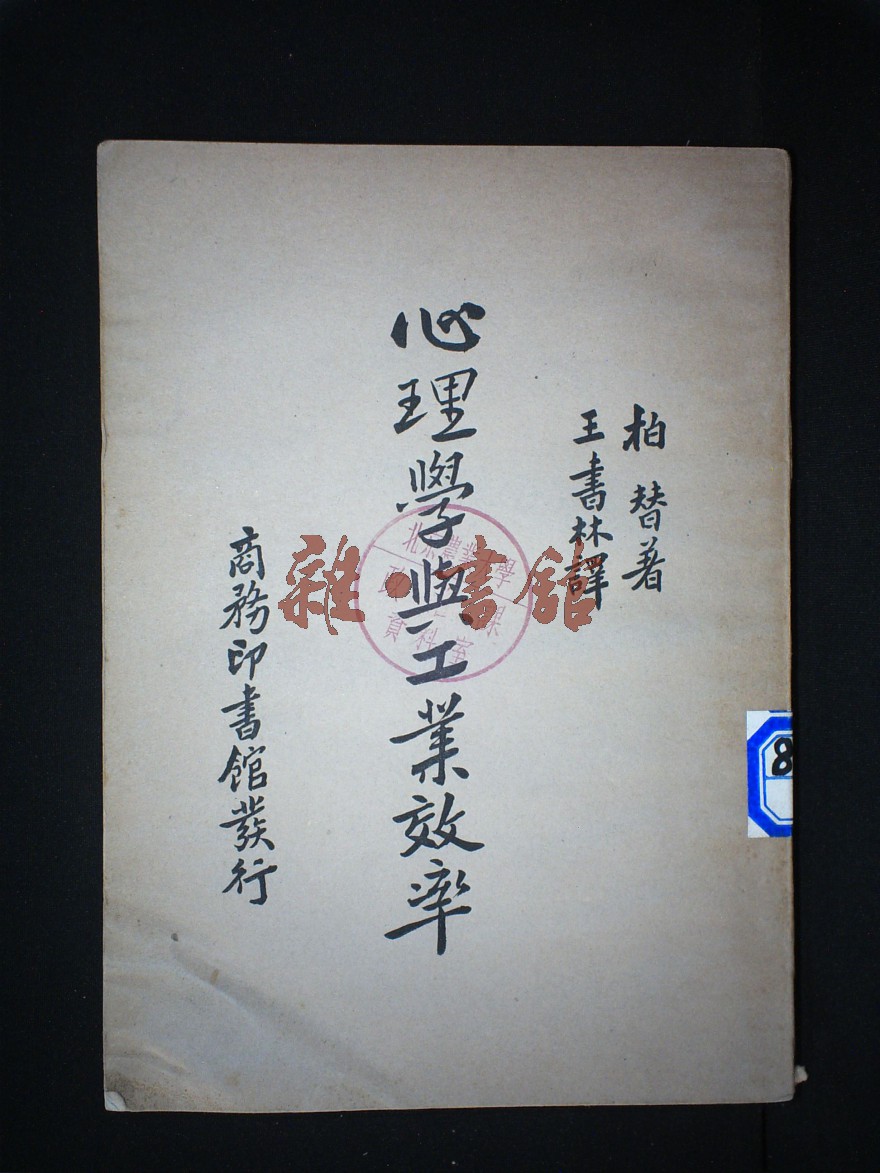 柏替著
王書林譯
心理學與工業效率
商務印書館發行
雜·書館
資料室
8